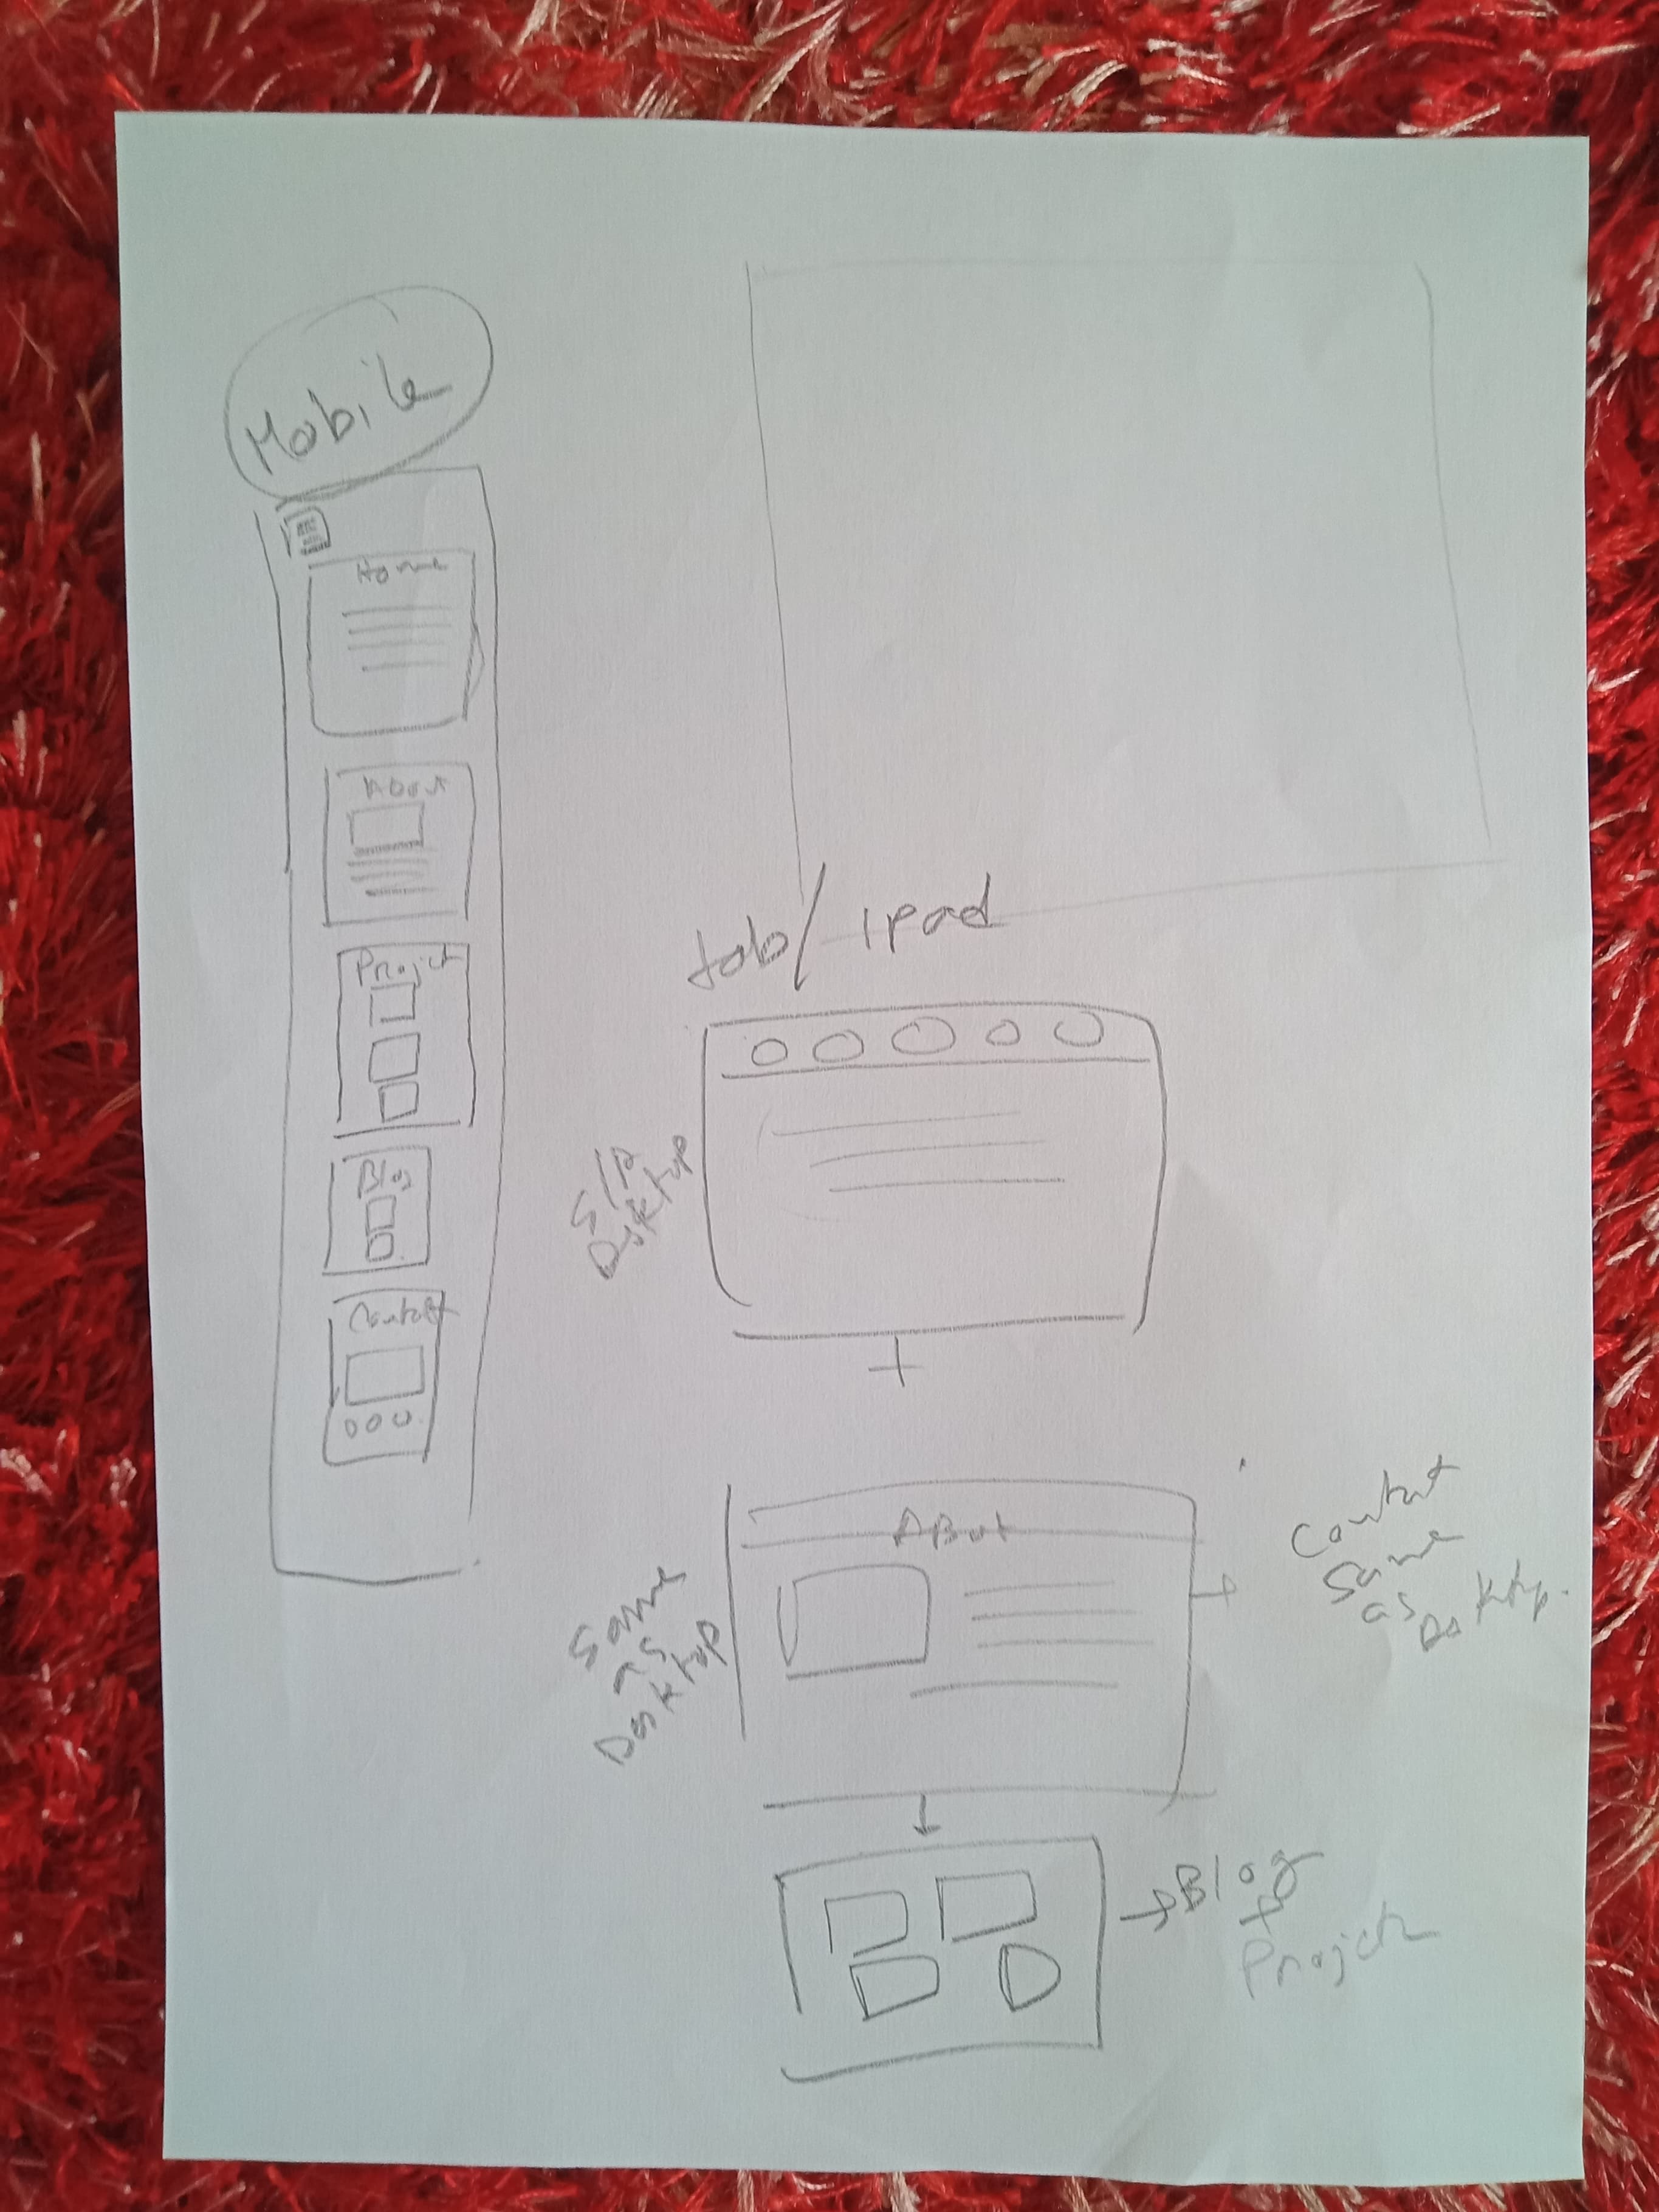 Mobile
Home
About
Project
Blog
Contact
tab/ ipad
Desktop
About
Same
as
Desktop
Contat
Same
as
Blog
+
Projects